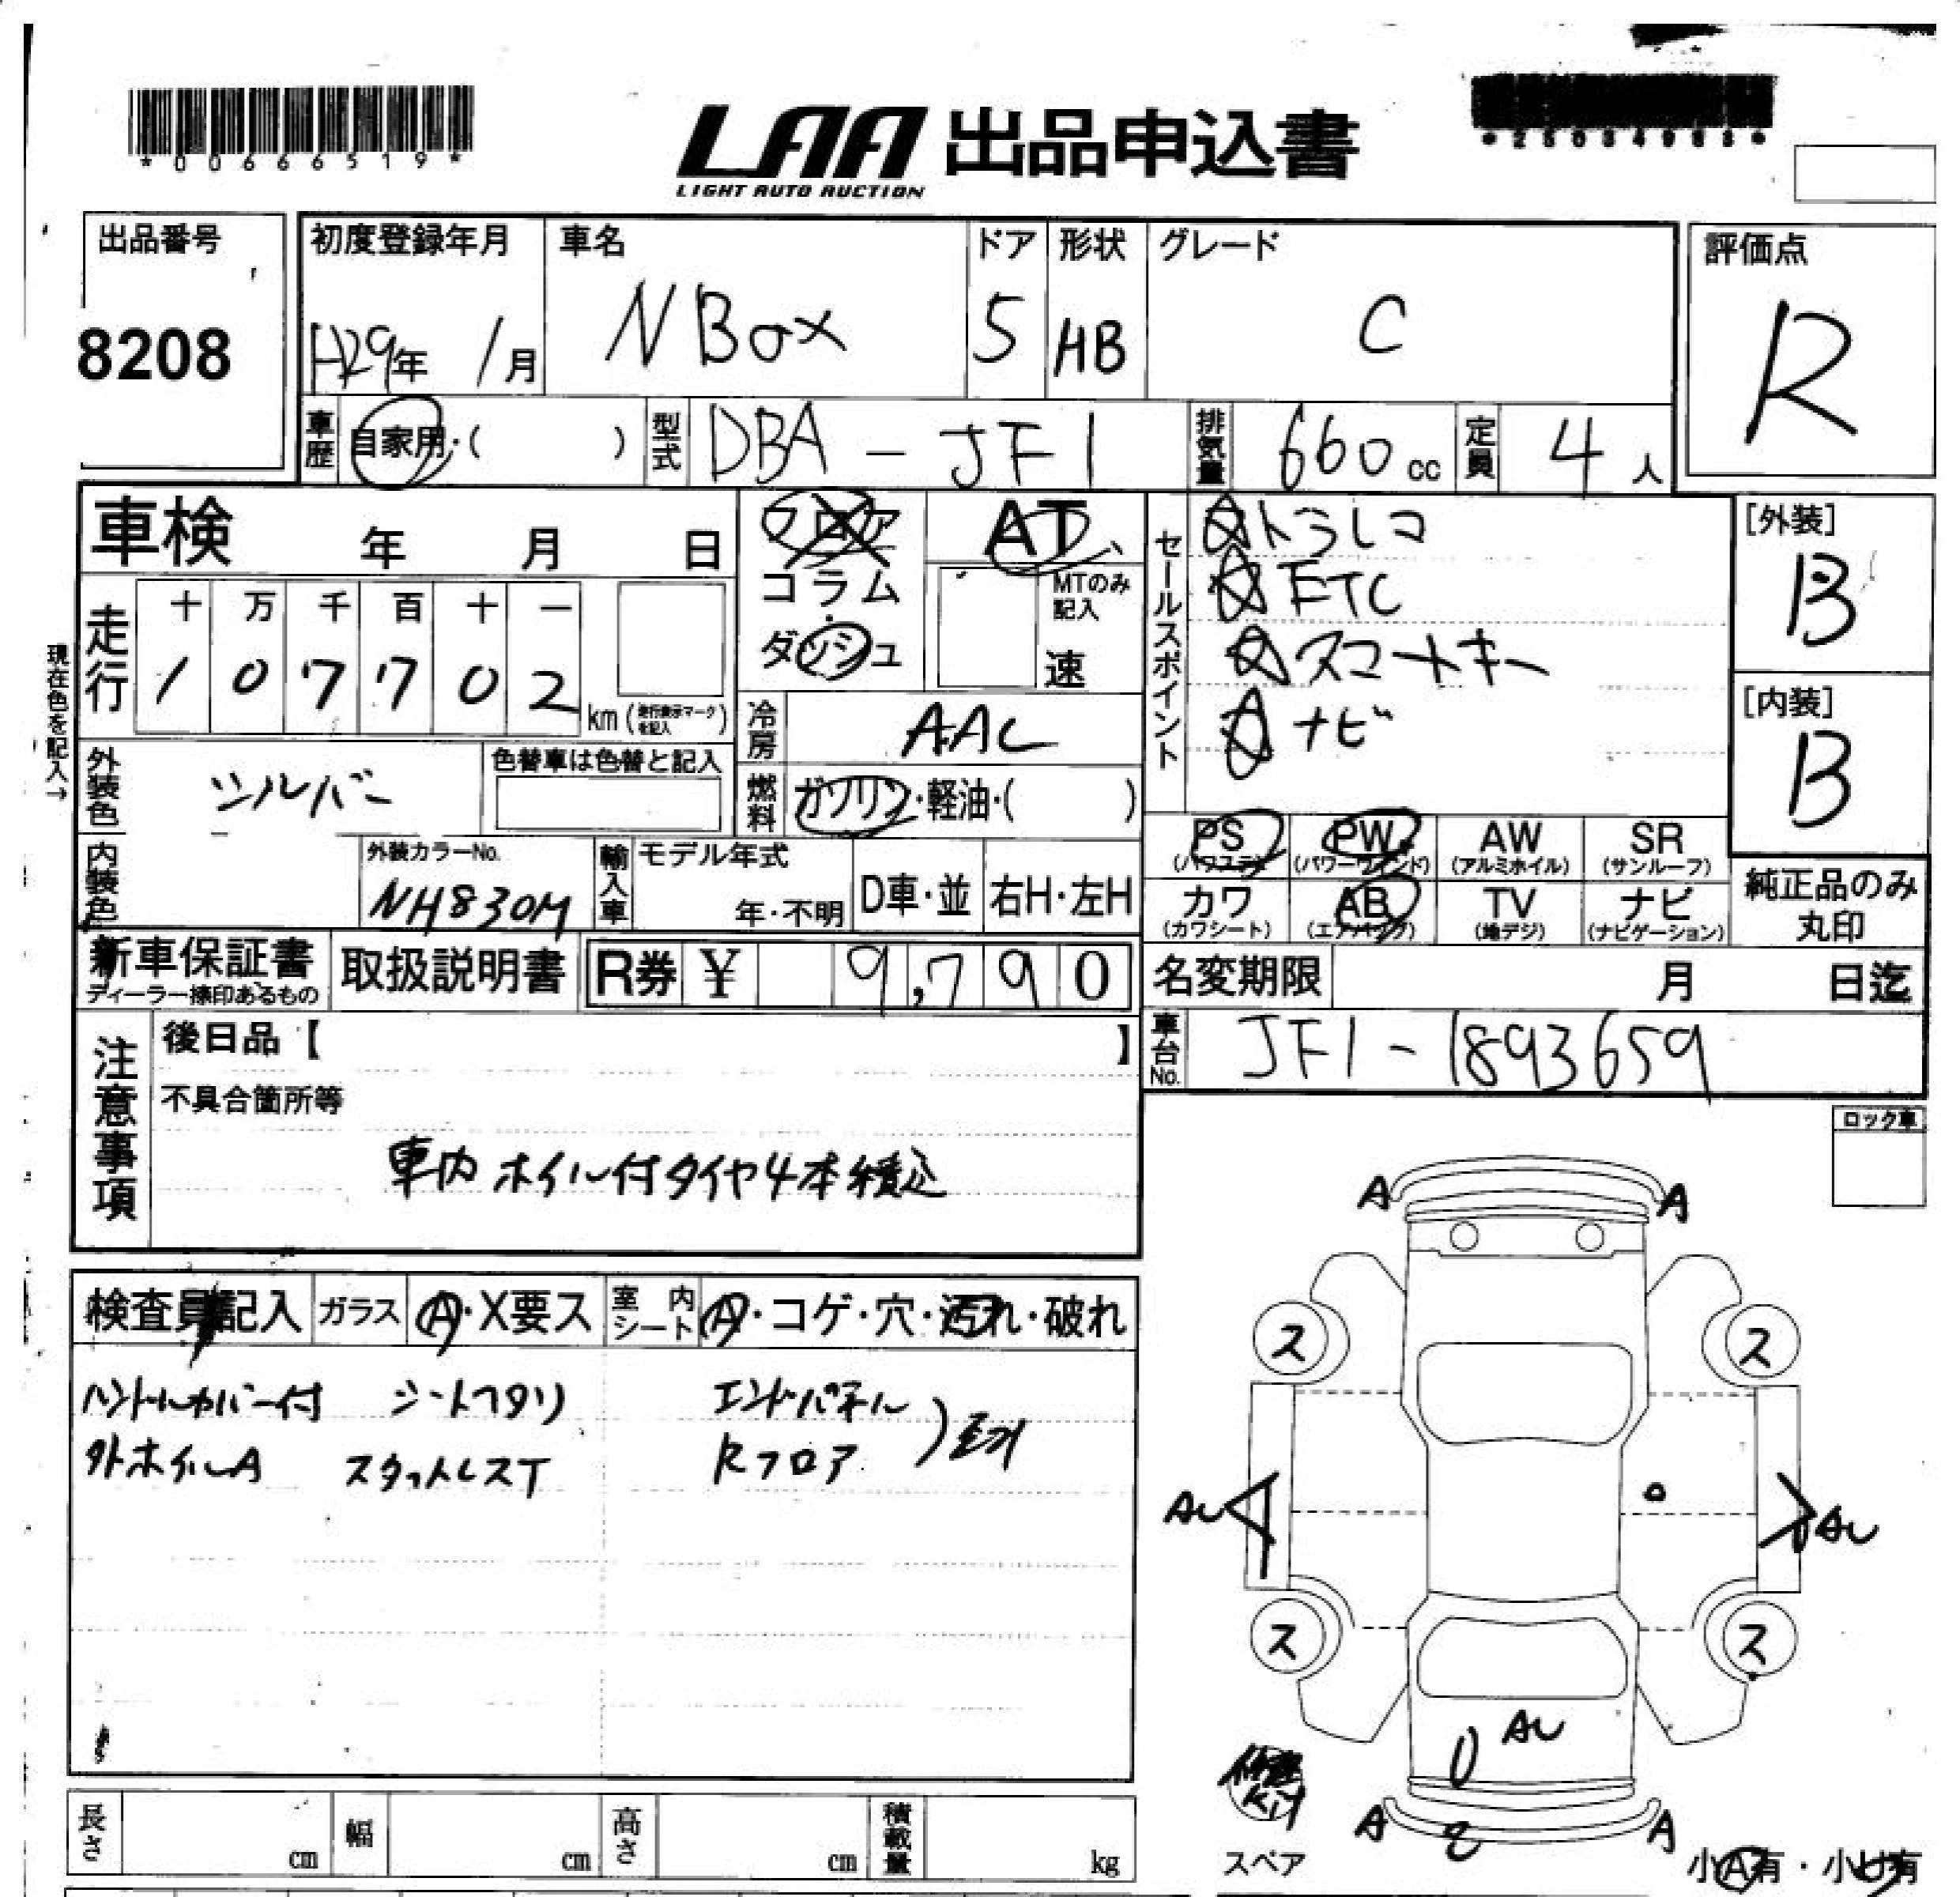 *00666519*
LAA 出品申込書
LIGHT AUTO AUCTION
*25034983*
出品番号
8208
初度登録年月
H29年 1月
車名
N Box
ドア
5
形状
HB
グレード
C
評価点
R
車歴
自家用・( )
型式
DBA - JF1
排気量
660 cc
定員
4 人
車検 年 月 日
フロア
コラム
ダッシュ
AT
MTのみ記入
速
セールスポイント
☆ドラレコ
☆ETC
☆スマートキー
☆ナビ
[外装]
B
[内装]
B
現在色を記入→
走行
十 万 千 百 十 一
1 0 7 7 0 2
km (走行表示マークを記入)
冷房
AAC
外装色
シルバー
色替車は色替と記入
燃料
ガソリン・軽油・( )
内装色
外装カラーNo.
NH830M
輸入車
モデル年式
年・不明
D車・並
右H・左H
PS
(パワステ)
PW
(パワーウィンド)
AW
(アルミホイル)
SR
(サンルーフ)
カワ
(カワシート)
AB
(エアバッグ)
TV
(地デジ)
ナビ
(ナビゲーション)
純正品のみ
丸印
新車保証書
ディーラー捺印あるもの
取扱説明書
R券 ¥ 9,790
名変期限 月 日迄
車台No.
JF1-1893659
注意事項
後日品【 】
不具合箇所等
車内 ホイル付タイヤ4本積込
ロック車
検査員記入
ガラス
A・X要ス
室内
シート
A・コゲ・穴・汚れ・破れ
ハンドルカバー付 シートヘタリ エンドパネル
外ホイルA スタットレスT Rフロア
A A
ス ス
AU AU
ス ス
AU
A A
修理
KIT
スペア
小A有・小U有
長さ cm
幅 cm
高さ cm
積載量 kg